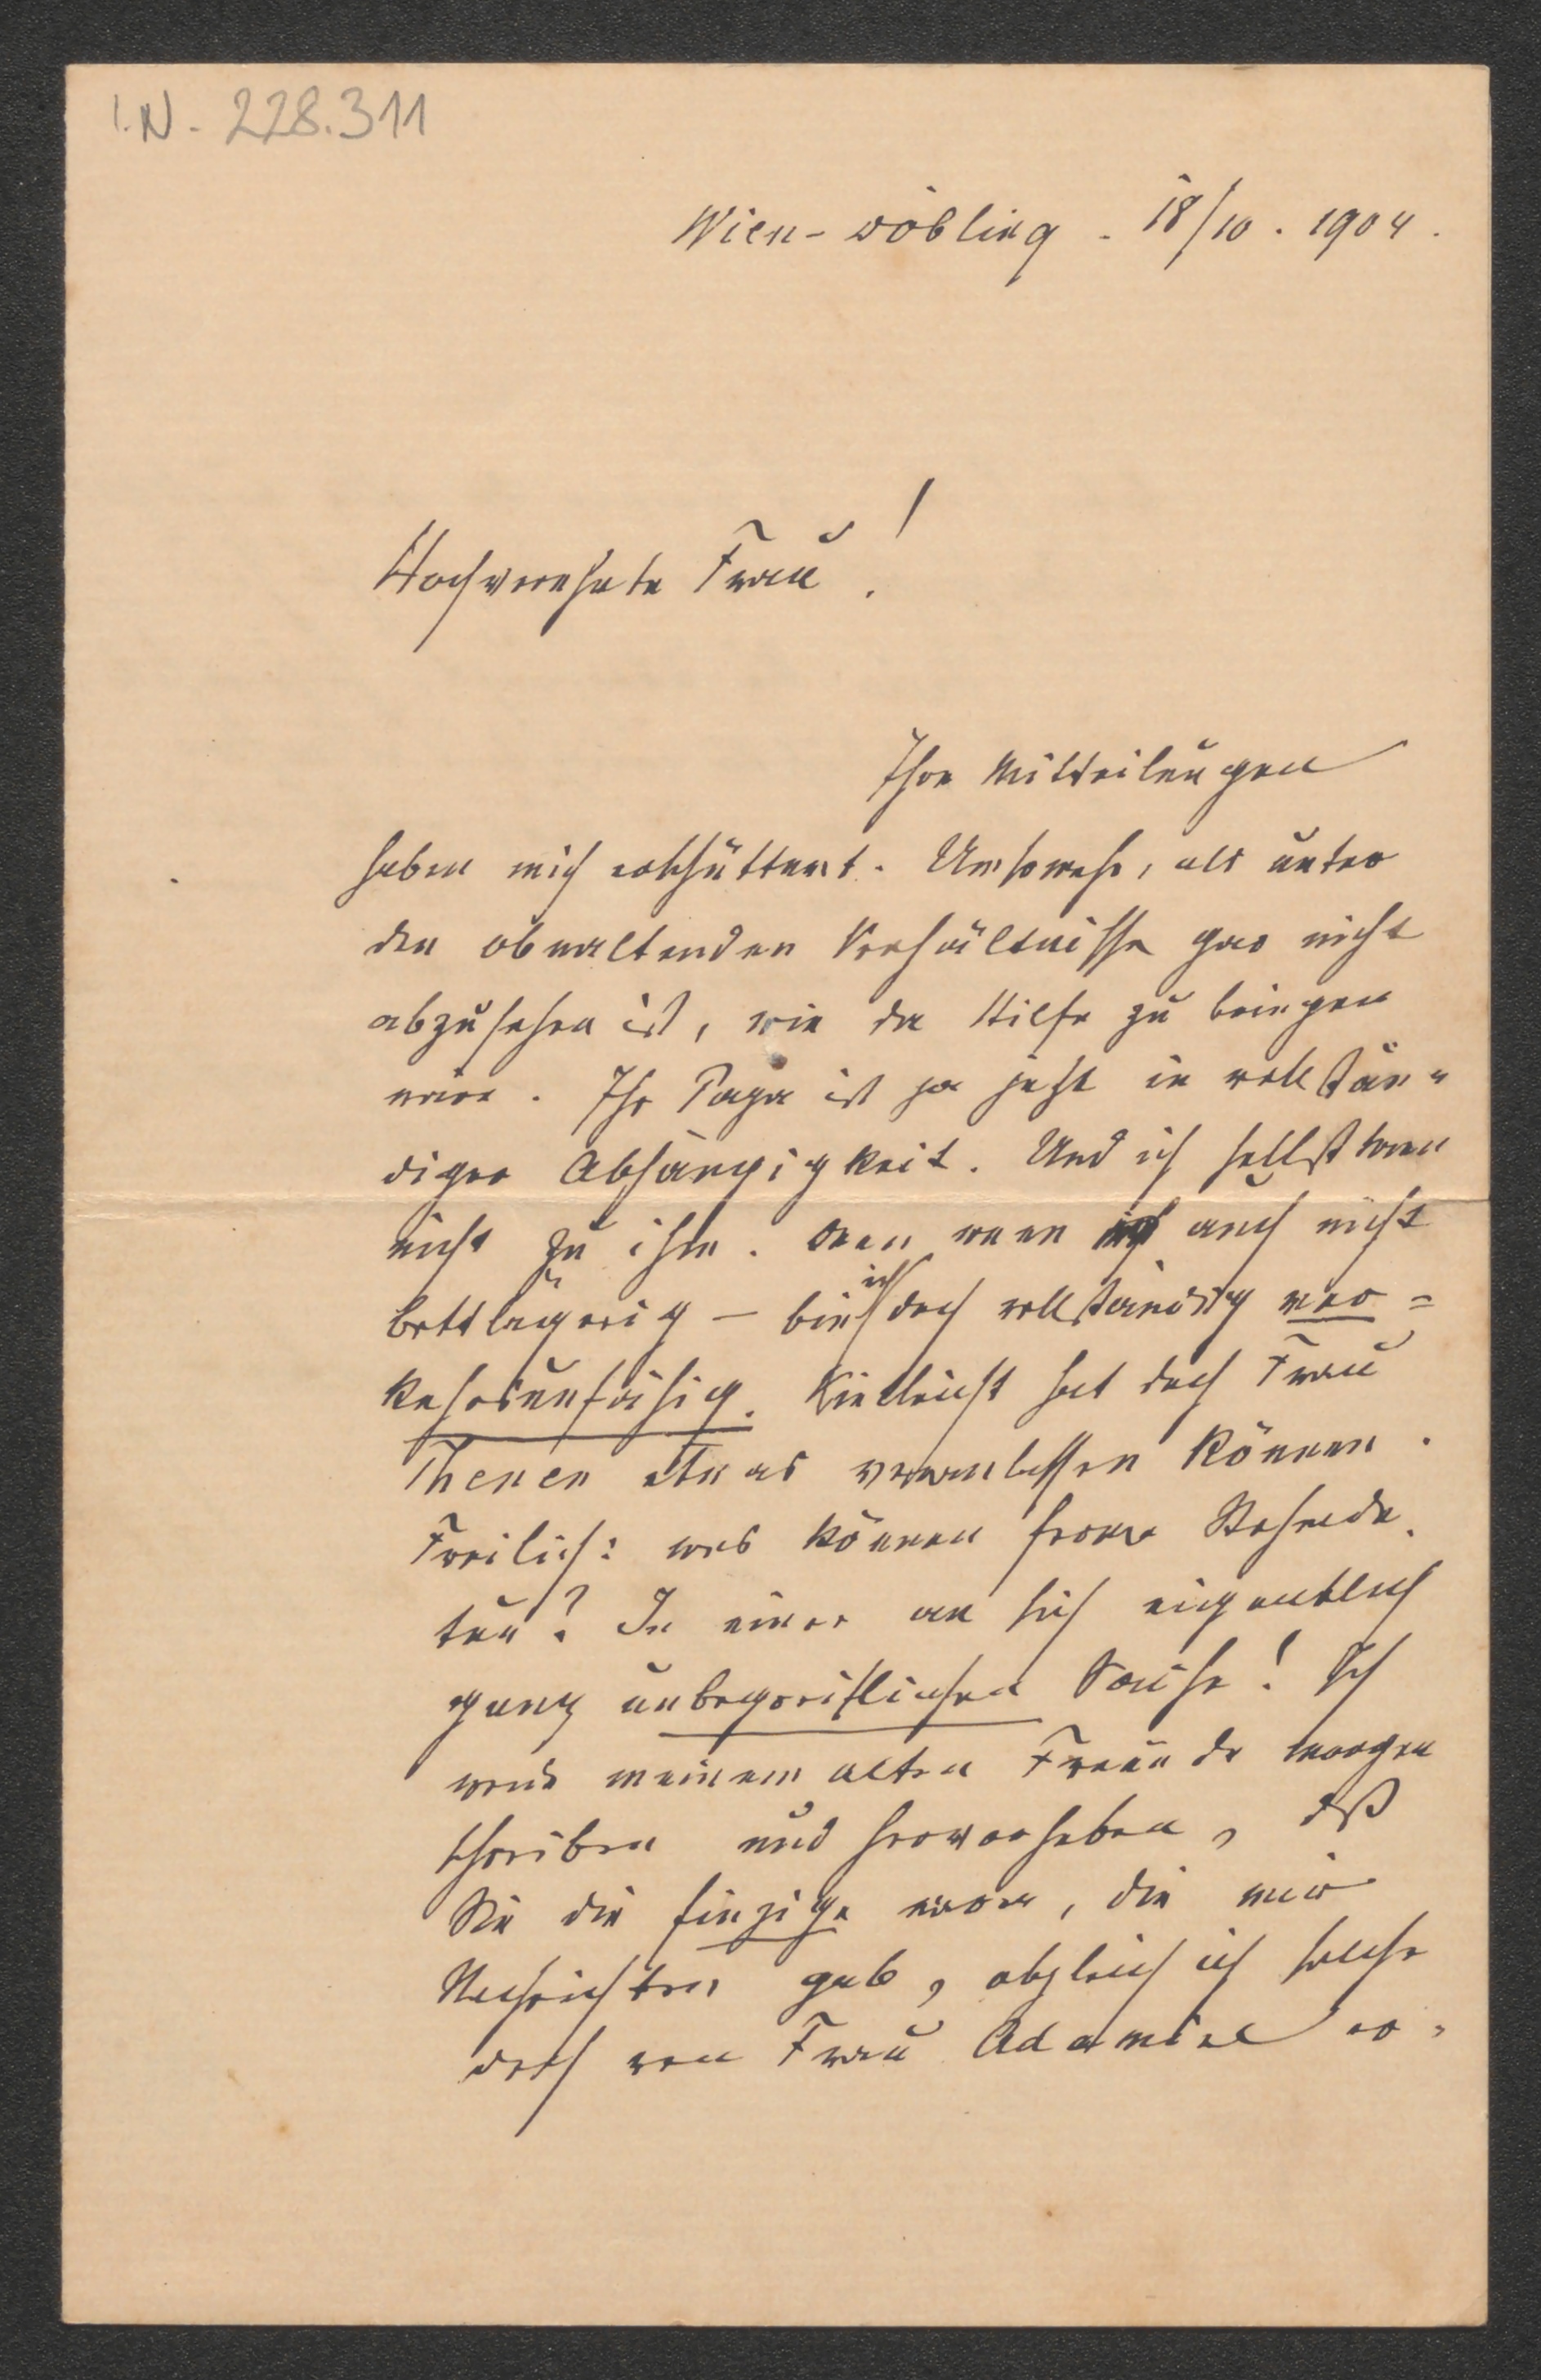 I.N. 228.311
Wien-Döbling. 18/10. 1904.
Hochverehrte Frau!
Ihre Mitteilungen
haben mich erschüttert. Umsomehr, als unter
den obwaltenden Verhältnisse gar nicht
abzusehen ist, wie da Hilfe zu bringen
wäre. Ihr Papa ist ja jetzt in vollstän=
diger Abhängigkeit. Und ich selbst kann
nicht zu ihm. Denn wenn auch nicht
bettlägerig – bin ich doch vollständig ver=
kehrsunfähig. Vielleicht hat doch Frau
Thenen etwas veranlassen können.
Freilich: was können ferne Stehende
tun? In einer an sich eigentlich
ganz unbegreiflichen Sache! Ich
werde meinem alten Freunde morgen
schreiben und hervorheben, daß
Sie die Einzige waren, die mir
Nachrichten gab, obgleich ich solche
doch von Frau er=